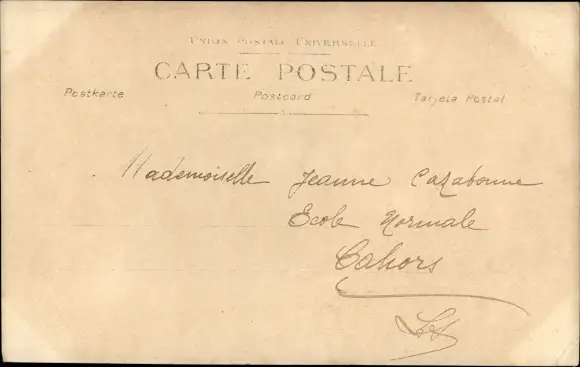 UNION POSTALE UNIVERSELLE
CARTE POSTALE
Postkarte Postcard Tarjeta Postal
Mademoiselle Jeanne Cazabonne
Ecole Normale
Cahors